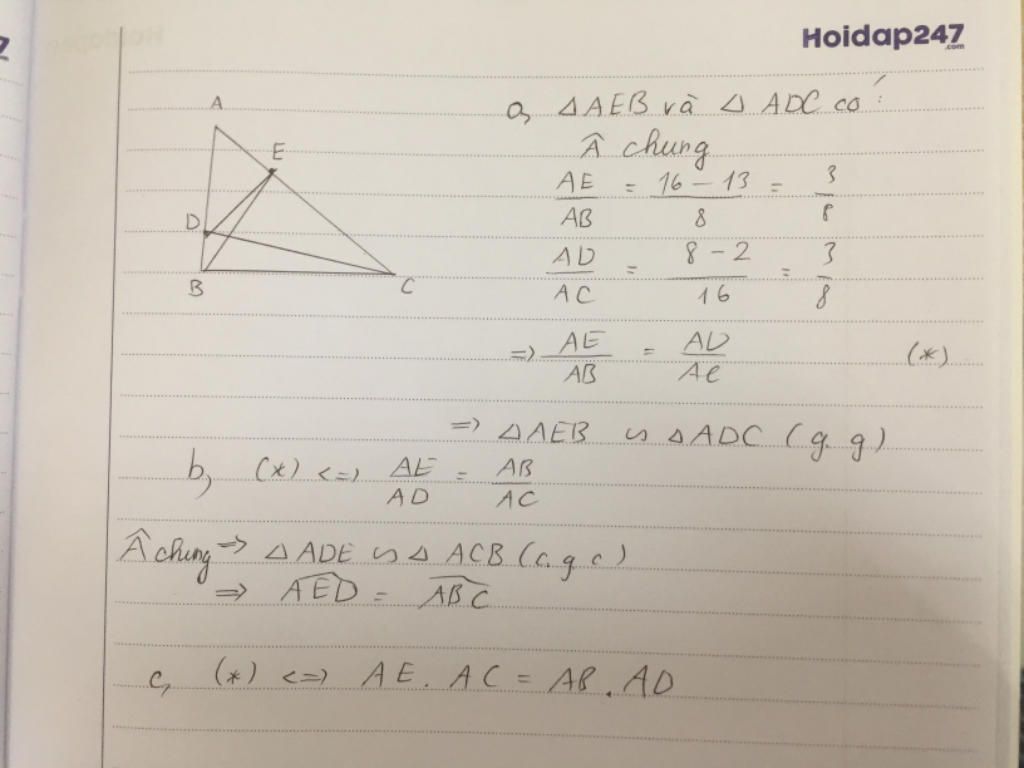 Hoidap247
.com
a, △AEB và △ADC có:
Â chung
AE/AB = 16 - 13/8 = 3/8
AD/AC = 8 - 2/16 = 3/8
=> AE/AB = AD/AC (*)
=> △AEB ∽ △ADC (g.g)
b, (*) <=> AE/AD = AB/AC
Â chung => △ADE ∽ △ACB (c.g.c)
=> \widehat{AED} = \widehat{ABC}
c, (*) <=> AE.AC = AB.AD
A
E
D
B
C